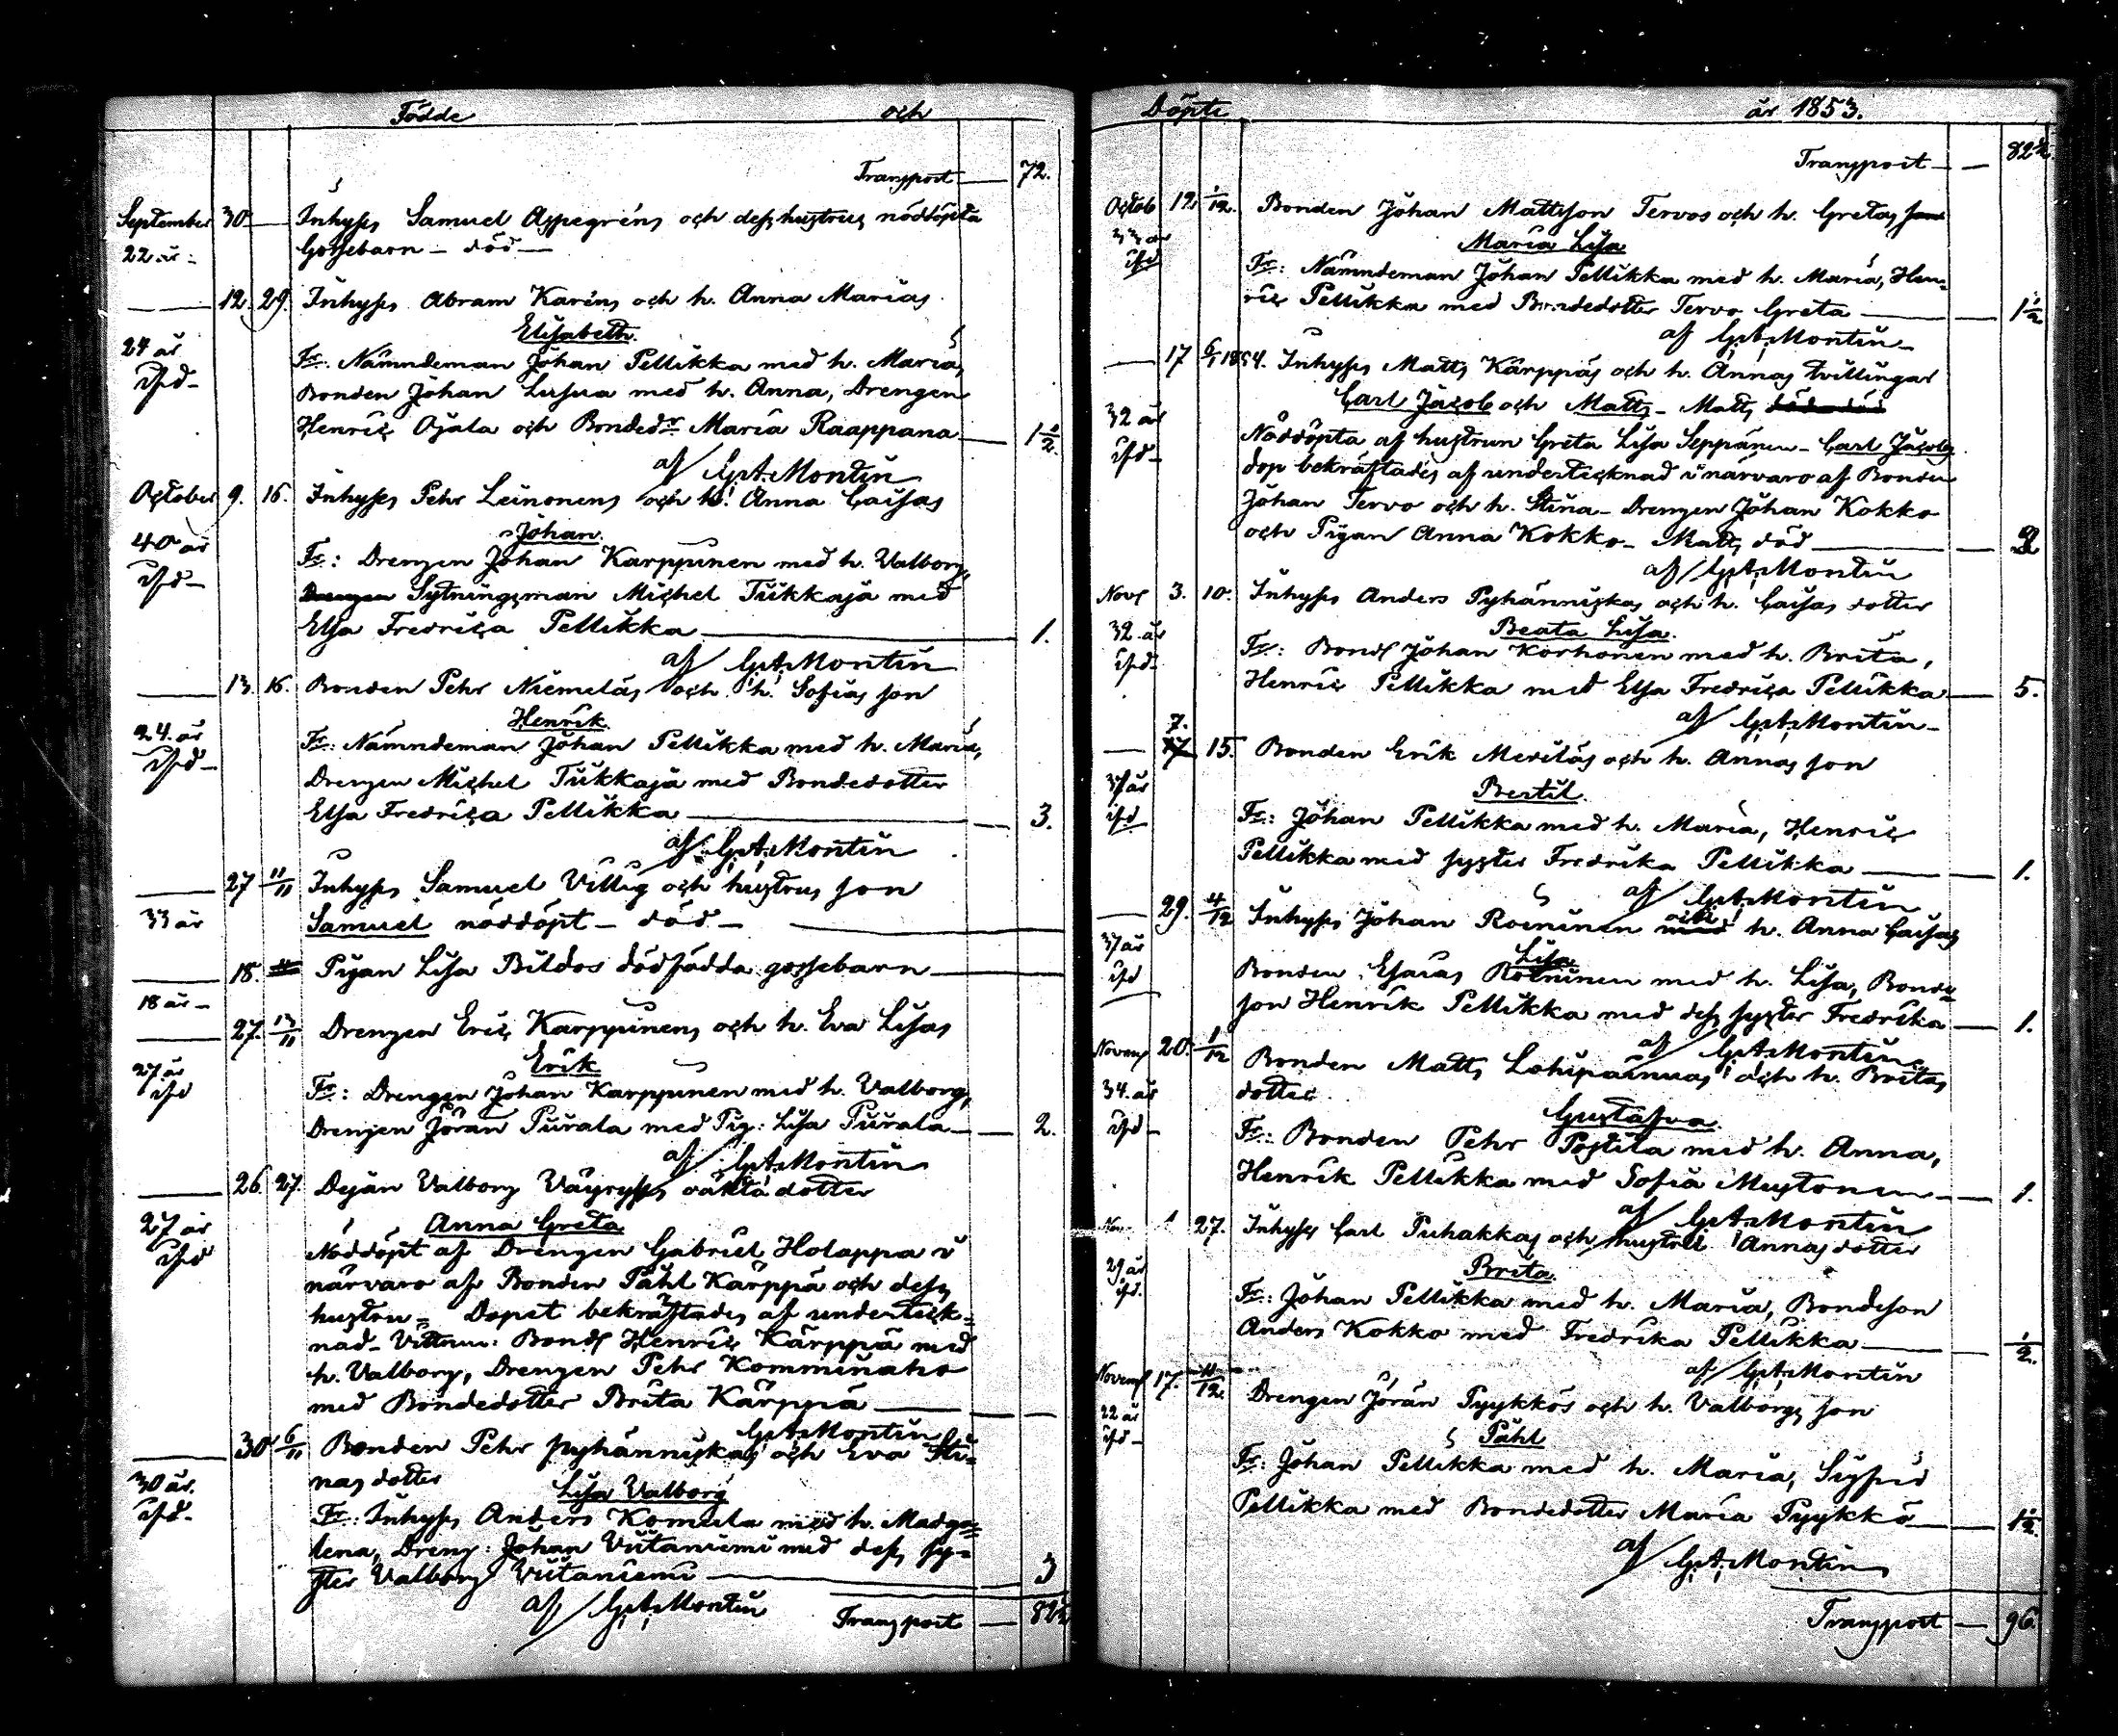 Födde och
Transport — 72.
September 30 — Inhyses Samuel Aspegréns och dess hustrus nöddöpta
22 år - Gossebarn — död —
— 12. 29. Inhyses Abram Karéns och h. Anna Marias
Elisabeth
24 år Fr. Nämndeman Johan Pellikka med h. Maria,
Bonden Johan Lusua med h. Anna, Drengen
Henric Ojala och Bonded:r Maria Raappana — 1 1/2.
af G. A. Montin
October 9. 16. Inhyses Pehr Leinonens och h. Anna Caisas
Johan.
40 år Fr: Drengen Johan Karppinen med h. Valborg,
Drengen Sytningsman Michel Tiikkaja med
Elsa Fredrica Pellikka — 1.
af G. A. Montin
— 13. 16. Bonden Pehr Niemeläs och h. Sofias son
Henrik
24. år Fr: Nämndeman Johan Pellikka med h. Maria,
Drengen Michel Tiikkaja med Bondedotter
Elsa Fredrica Pellikka — 3.
af G. A. Montin
— 27 11/11 Inhyses Samuel Villig och hustrus son
33 år Samuel nöddöpt — död —
— 18. Pigan Lisa Bildos dödfödda gossebarn —
18 år —
— 27. 13/11 Drengen Eric Karppinens och h. Eva Lisas
Erik
27 år Fr: Drengen Johan Karppinen med h. Valborg,
Drengen Jöran Piirala med Pig: Lisa Piirala — 2.
af G. A. Montin
— 26. 27. Dejan Valborg Väyryses oäkta dotter
27 år Anna Greta
Nöddöpt af Drengen Gabriel Holappa i
närvaro af Bonden Påhl Kärppä och dess
hustru — Dopet bekräftades af underteck-
nad — Vittnen: Bond Henric Kärppä med
h. Valborg, Drengen Pehr Komminaho
med Bondedotter Brita Kärppä —
G. A. Montin
— 30 6/11 Bonden Pehr Pyhänniskas och Eva Sti-
nas dotter
30 år. Lisa Valborg
Fr: Inhyses Anders Komula med h. Madga-
lena, Dreng: Johan Viitaniemi med dess sy-
ster Valborg Viitaniemi — 3
af G. A. Montin Transport — 82 1/2
Döpte år 1853.
Transport — 82 1/2
Octob 12. 1/12. Bonden Johan Mattsson Tervos och h. Gretas
33 år Maria Lisa
Fr: Nämndeman Johan Pellikka med h. Maria, Hen-
ric Pellikka med Bondedotter Tervo Greta — 1 1/2
af G. A. Montin —
— 17 6/1 1854. Inhyses Matts Kärppäs och h. Annas tvillingar
Carl Jacob och Matts — Matts
32 år Nöddöpta af hustrun Greta Lisa Seppänen — Carl Jacobs
dop bekräftades af undertecknad i närvaro af Bonden
Johan Tervo och h. Stina — Drengen Johan Kokko
och Pigan Anna Kokko — Matts död —
af G. A. Montin
Nov 3. 10. Inhyses Anders Pyhänniskas och h. Caisas dotter
32. år Beata Lisa.
Fr: Bond Johan Korhonen med h. Brita,
Henric Pellikka med Elsa Fredrica Pellikka — 5.
af G. A. Montin —
7.
— 17 15. Bonden Erik Meriläs och h. Annas son
Bertil.
37 år Fr: Johan Pellikka med h. Maria, Henric
Pellikka med syster Fredrika Pellikka — 1.
af G. A. Montin
— 29. 4/12 Inhyses Johan Roininen med och h. Anna Caisas
37 år Lisa
Bonden Esaias Roininen med h. Lisa, Bonde-
son Henrik Pellikka med dess syster Fredrika — 1.
af G. A. Montin
Novem 20. 1/12 Bonden Matts Lohipainuas och h. Britas
34. år dotter
Gustafva
Fr: Bonden Pehr Postila med h. Anna,
Henrik Pellikka med Sofia Mustonen — 1.
af G. A. Montin
27. Inhyses Carl Puhakkas och hustru Annas dotter
29 år Brita.
Fr: Johan Pellikka med h. Maria, Bondeson
Anders Kokko med Fredrika Pellikka — 1/2.
af G. A. Montin
Novem 17. 11/12 Drengen Jöran Pyykkös och h. Valborgs son
22 år Påhl
Fr: Johan Pellikka med h. Maria, Sigfrid
Pellikka med Bondedotter Maria Pyykkö — 1 1/2.
af G. A. Montin
Transport — 96.